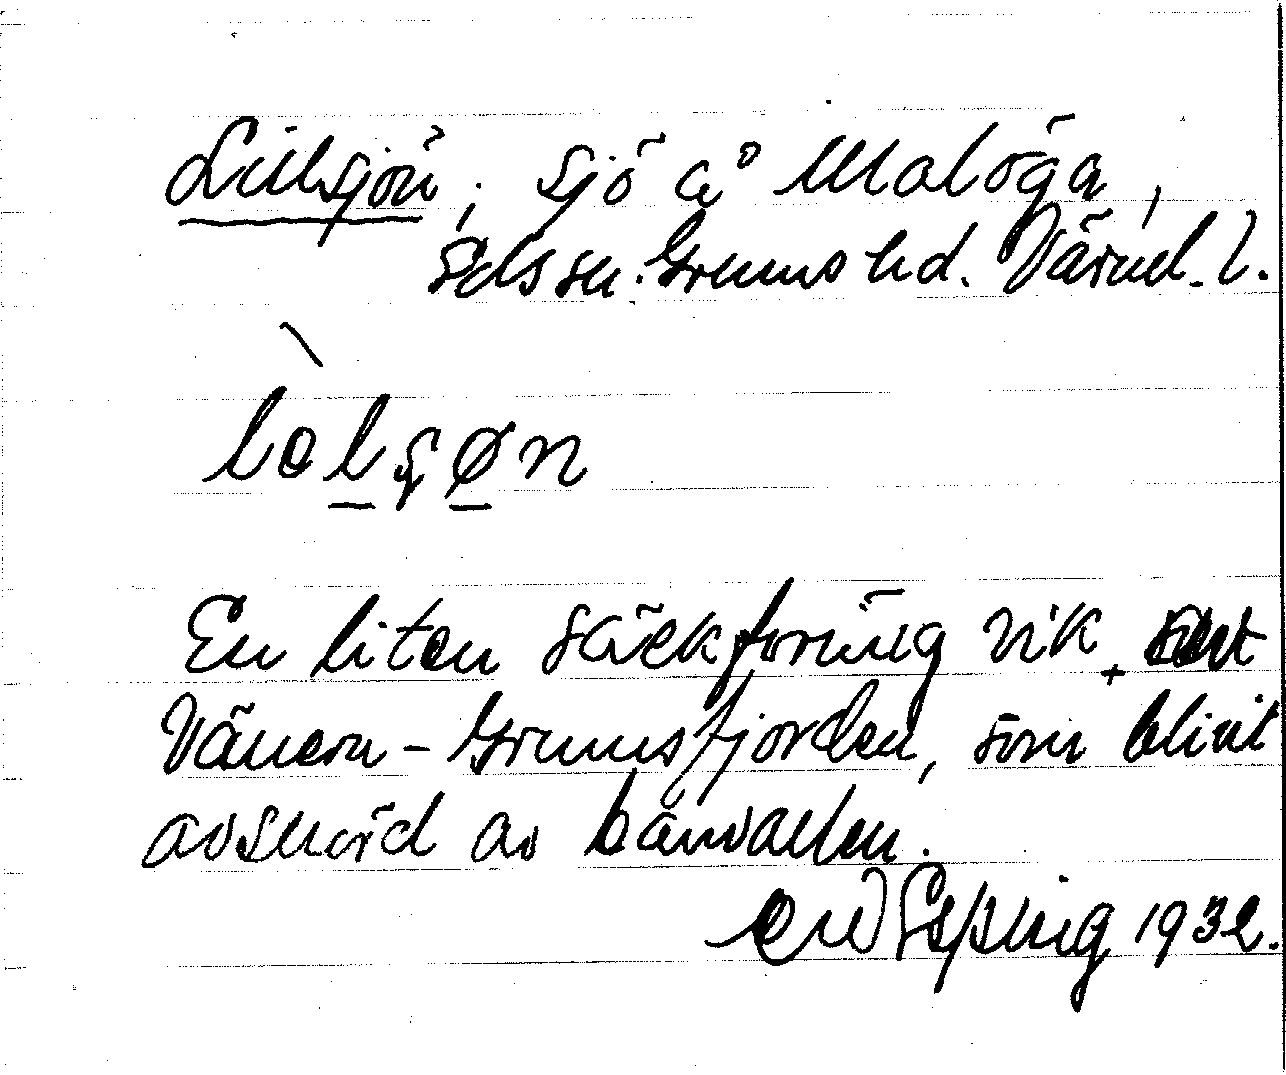 Lillsjön, sjö å Malöga,
Eds sn. Grums hd. Värml. l.
En liten säckformig vik,
Vänern-Grumsfjorden, som blivit
avskord av banvallen.
1932.